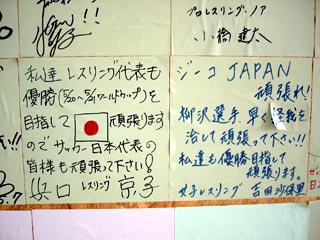 プロレスリング・ノア
小橋建太
私達 レスリング代表も
優勝(5/20〜5/21ワールドカップ)を
目指して 頑張ります
ので サッカー日本代表の
皆様も頑張って下さい!
浜口 レスリング 京子
ジーコ JAPAN
頑張れ!
柳沢選手 早く怪我を
治して頑張って下さい!!
私達も優勝目指して
頑張ります。
女子レスリング 吉田沙保里